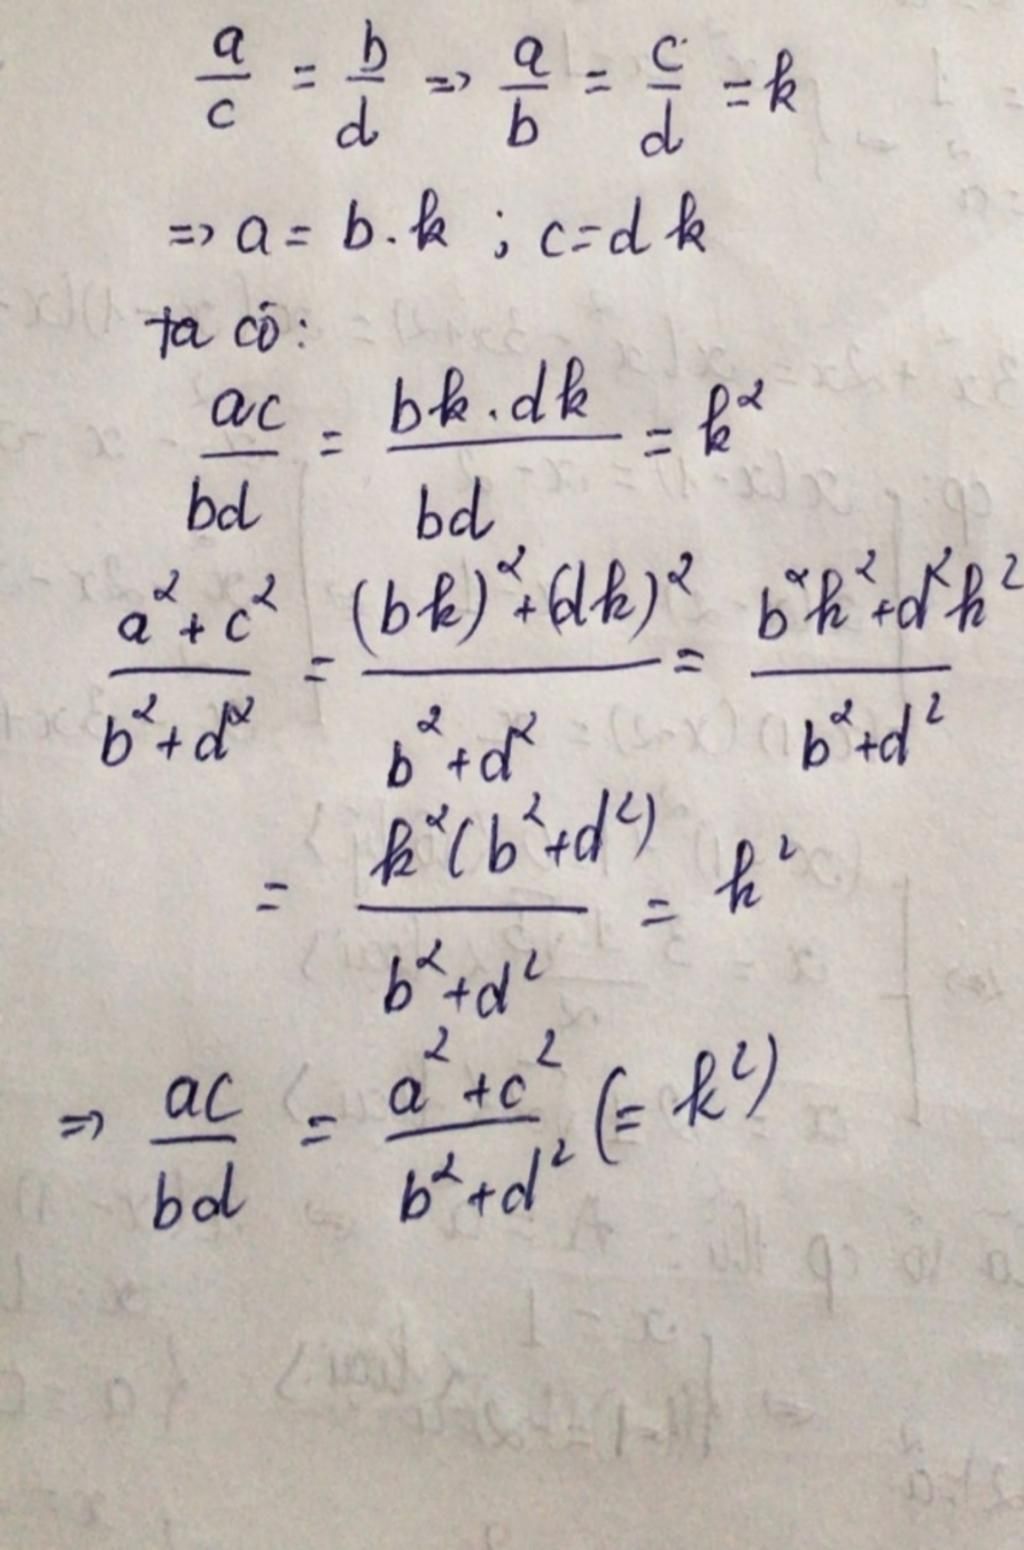 a/c = b/d => a/b = c/d = k
=> a = b.k ; c = dk
ta có:
ac/bd = bk.dk/bd = k²
(a²+c²)/(b²+d²) = ((bk)²+(dk)²)/(b²+d²) = (b²k²+d²k²)/(b²+d²)
= k²(b²+d²)/(b²+d²) = k²
=> ac/bd = (a²+c²)/(b²+d²) (= k²)